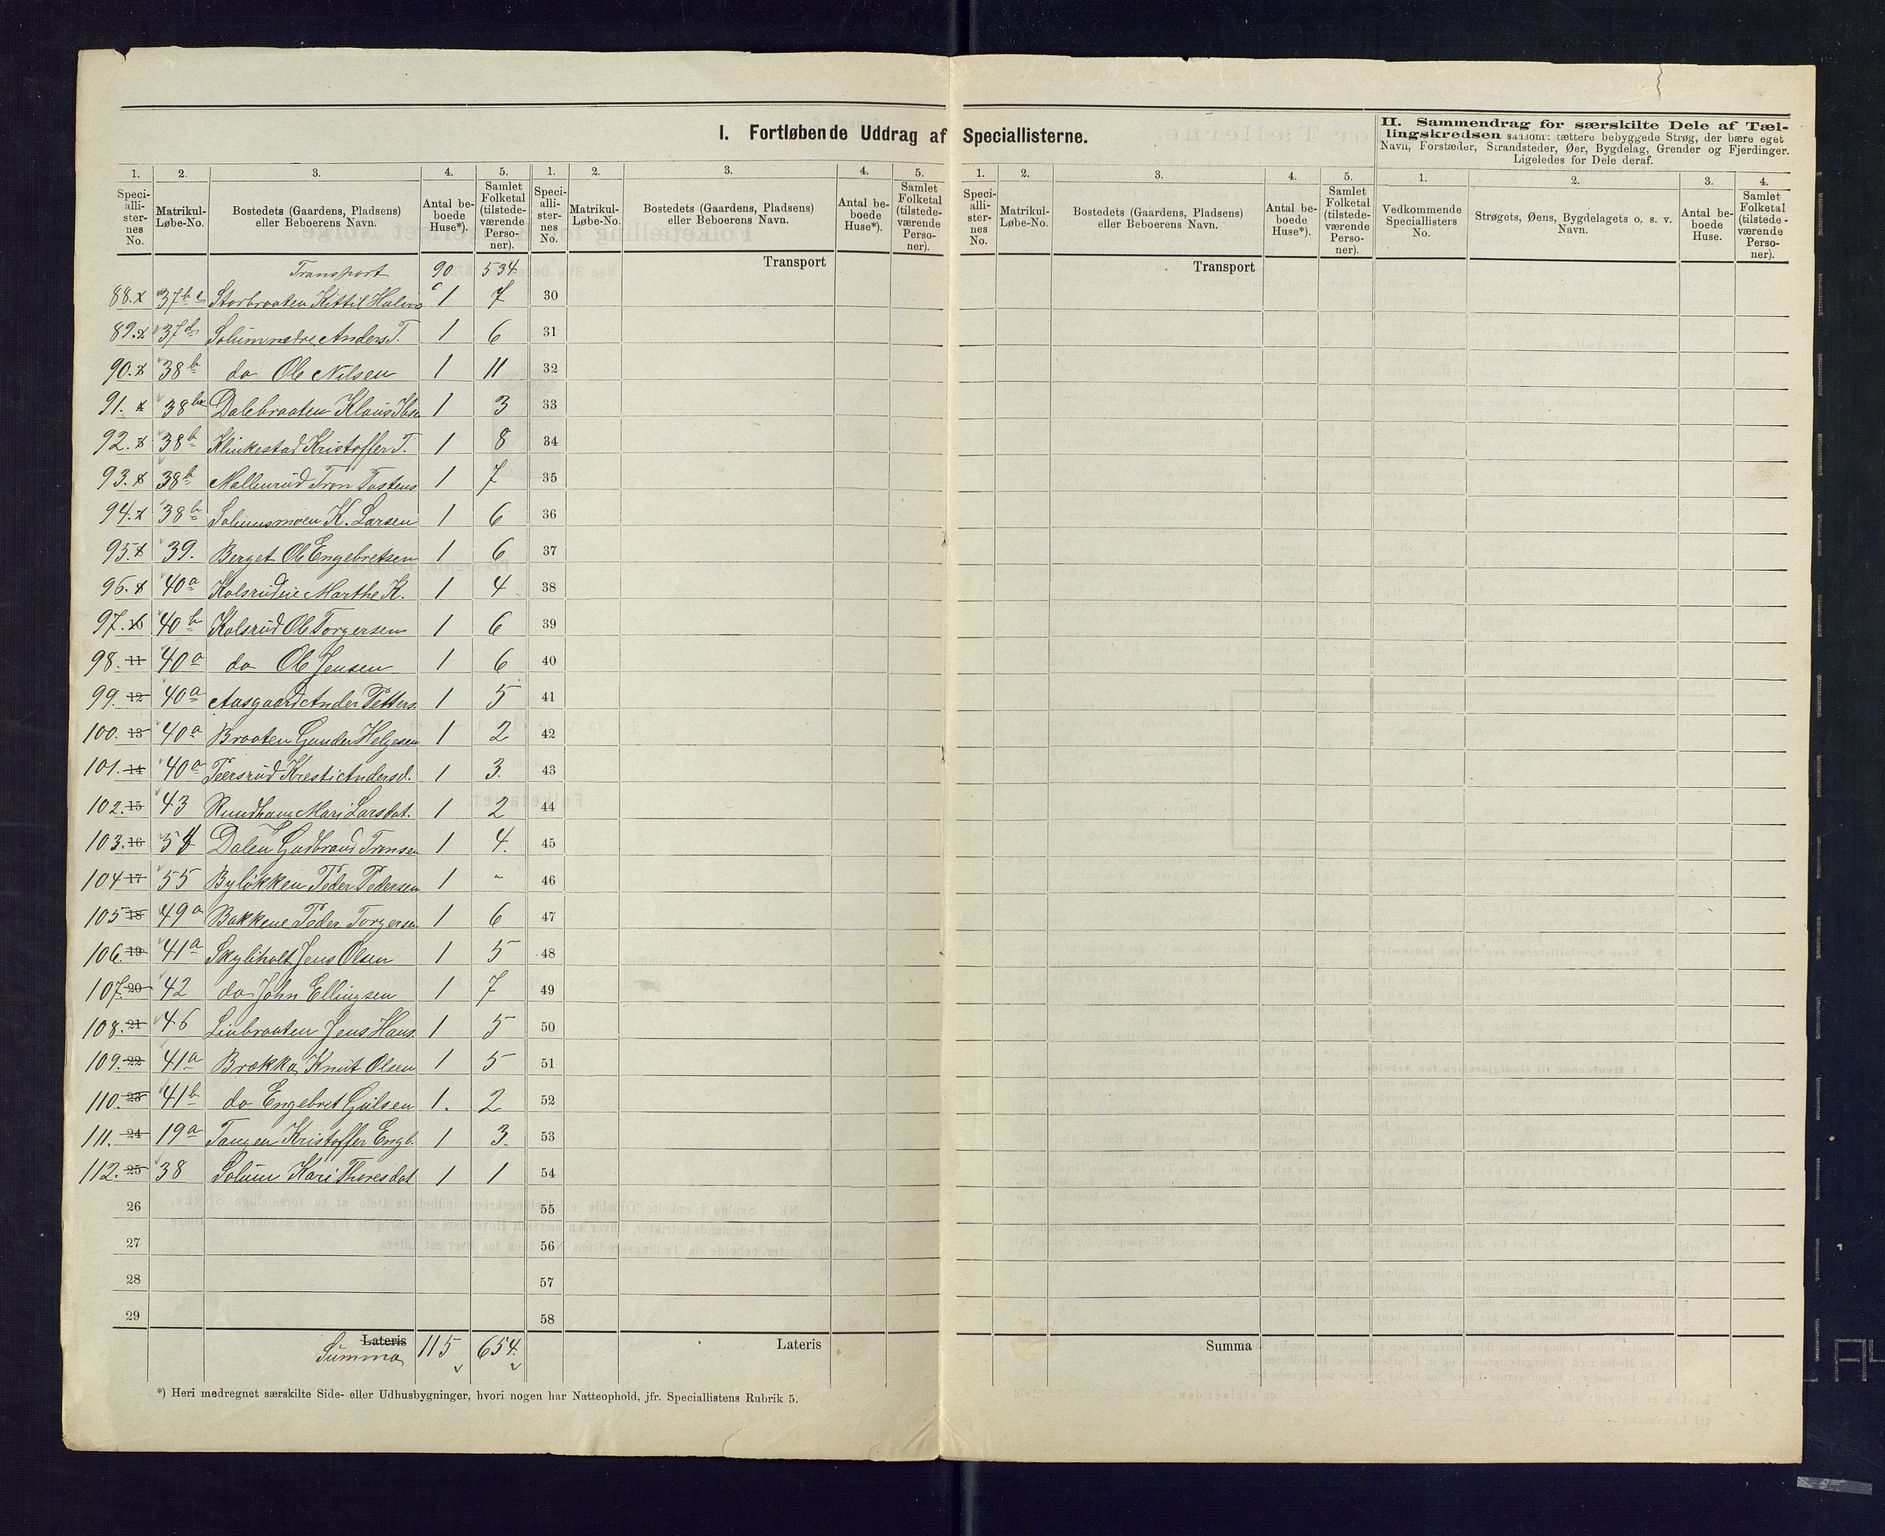 I. Fortløbende Uddrag af Speciallisterne.
II. Sammendrag for særskilte Dele af Tæl-
lingskredsen saasom: tættere bebyggede Strøg, der bære eget
Navn, Forstæder, Strandsteder, Øer, Bygdelag, Grender og Fjerdinger.
Ligeledes for Dele deraf.
1. 2. 3. 4. 5. 1. 2. 3. 4. 5. 1. 2. 3. 4. 5. 1. 2. 3. 4.
Speciallisternes No. Matrikul-Løbe-No. Bostedets (Gaardens, Pladsens) eller Beboerens Navn. Antal beboede Huse*). Samlet Folketal (tilstedeværende Personer).
Speciallisternes No. Matrikul-Løbe-No. Bostedets (Gaardens, Pladsens) eller Beboerens Navn. Antal beboede Huse*). Samlet Folketal (tilstedeværende Personer).
Speciallisternes No. Matrikul-Løbe-No. Bostedets (Gaardens, Pladsens) eller Beboerens Navn. Antal beboede Huse*). Samlet Folketal (tilstedeværende Personer).
Vedkommende Speciallisters No. Strøgets, Øens, Bygdelagets o. s. v. Navn. Antal beboede Huse. Samlet Folketal (tilstedeværende Personer).
Transport 90 534 Transport Transport
88. 37 Storbraaten Kittil Halvors 1 7 30
89. 37d Solumnedre Anders T. 1 6 31
90. 38b do Ole Nilsen 1 11 32
91. 38b Dalebraaten Klaus 1 3 33
92. 38b Klinkestad Kristoffer T. 1 8 34
93. 38b Mallerud Tron Tostens 1 7 35
94. 38b Solumsmoen K. Larsen 1 6 36
95. 39. Berget Ole Engebretsen 1 6 37
96. 40a Kolsrudeie Marthe K. 1 4 38
97. 40b Kolsrud Ole Torgersen 1 6 39
98. 11 40a do Ole Jensen 1 6 40
99. 12 40a Aasgaard Ander Petters. 1 5 41
100. 13 40a Braaten Gunder Helgesen 1 2 42
101. 14 40a Peersrud Kresti Andersd. 1 3. 43
102. 15 43 Rundhaug Mari Larsdat. 1 2 44
103. 16 54 Dalen Gudbrand Tronsen 1 4. 45
104 17 55 Byløkken Peder Pedersen 1 - 46
105 18 49a Bakkene Peder Torgersen 1 6 47
106. 19 41a Skyliholt Jens Olsen 1 5 48
107. 20 42 do John Ellingsen 1 7 49
108. 21 46 Linbraaten Jens Hans. 1 5 50
109. 22 41a Brække Knut Olsen 1 5 51
110. 23 41b do Engebret Gulsen 1. 2 52
111. 24 19a Tangen Kristoffer Engb. 1 3. 53
112. 25 38 Solum Kari Thoresdat 1 1 54
26 55
27 56
28 57
29 58
Lateris Lateris Summa
Summa 115 654.
*) Heri medregnet særskilte Side- eller Udhusbygninger, hvori nogen har Natteophold, jfr. Speciallistens Rubrik 5.